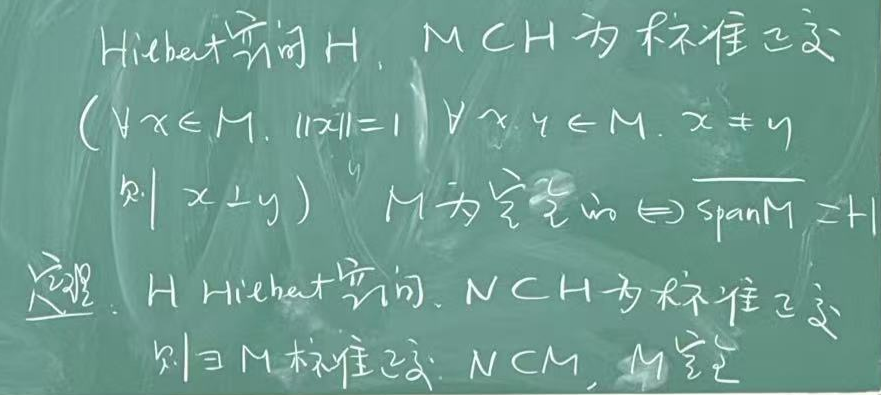 Hilbert空间 H. M⊂H 为标准正交
(∀x∈M. ||x||=1, ∀x.y∈M. x≠y
则 x⊥y) M为完全的 ⇔ \overline{span M} = H
定理. H Hilbert空间. N⊂H 为标准正交
则∃M标准正交. N⊂M, M完全